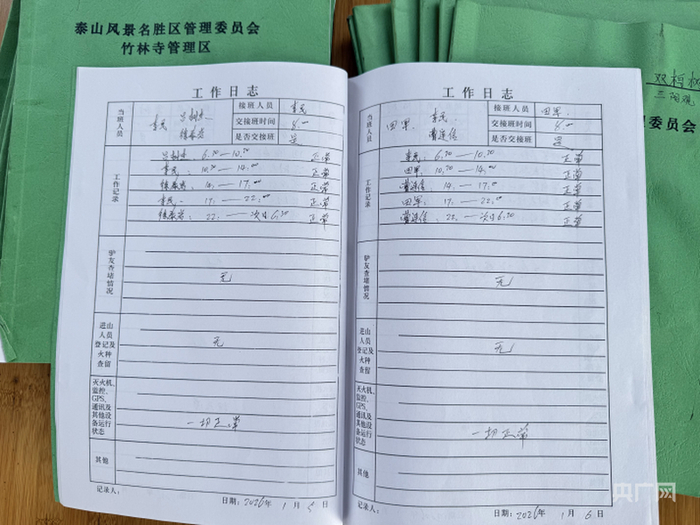 泰山风景名胜区管理委员会
竹林寺管理区
双柏树
三阳观
委员会
工作日志
当班人员
李民
接班人员
李民
交接班时间
8:00
是否交接班
是
工作记录
6:30——10:30 正常
李民: 10:30——14:00 正常
14:——17:00 正常
李民: 17:——22:00 正常
22:——次日6:30 正常
驴友查堵情况
无
进山人员登记及火种查留
无
灭火机、监控、GPS、通讯及其他设备运行状态
一切正常
其他
记录人:
日期: 2026年 1月 5日
工作日志
当班人员
田军
李民
接班人员
田军
交接班时间
8:00
是否交接班
是
工作记录
李民: 6:30——10:30 正常
田军: 10:30——14:00 正常
14:——17:00 正常
田军: 17:——22:00 正常
22:——次日6:30 正常
驴友查堵情况
无
进山人员登记及火种查留
无
灭火机、监控、GPS、通讯及其他设备运行状态
一切正常
其他
记录人:
日期: 2026年 1月 6日
央广网